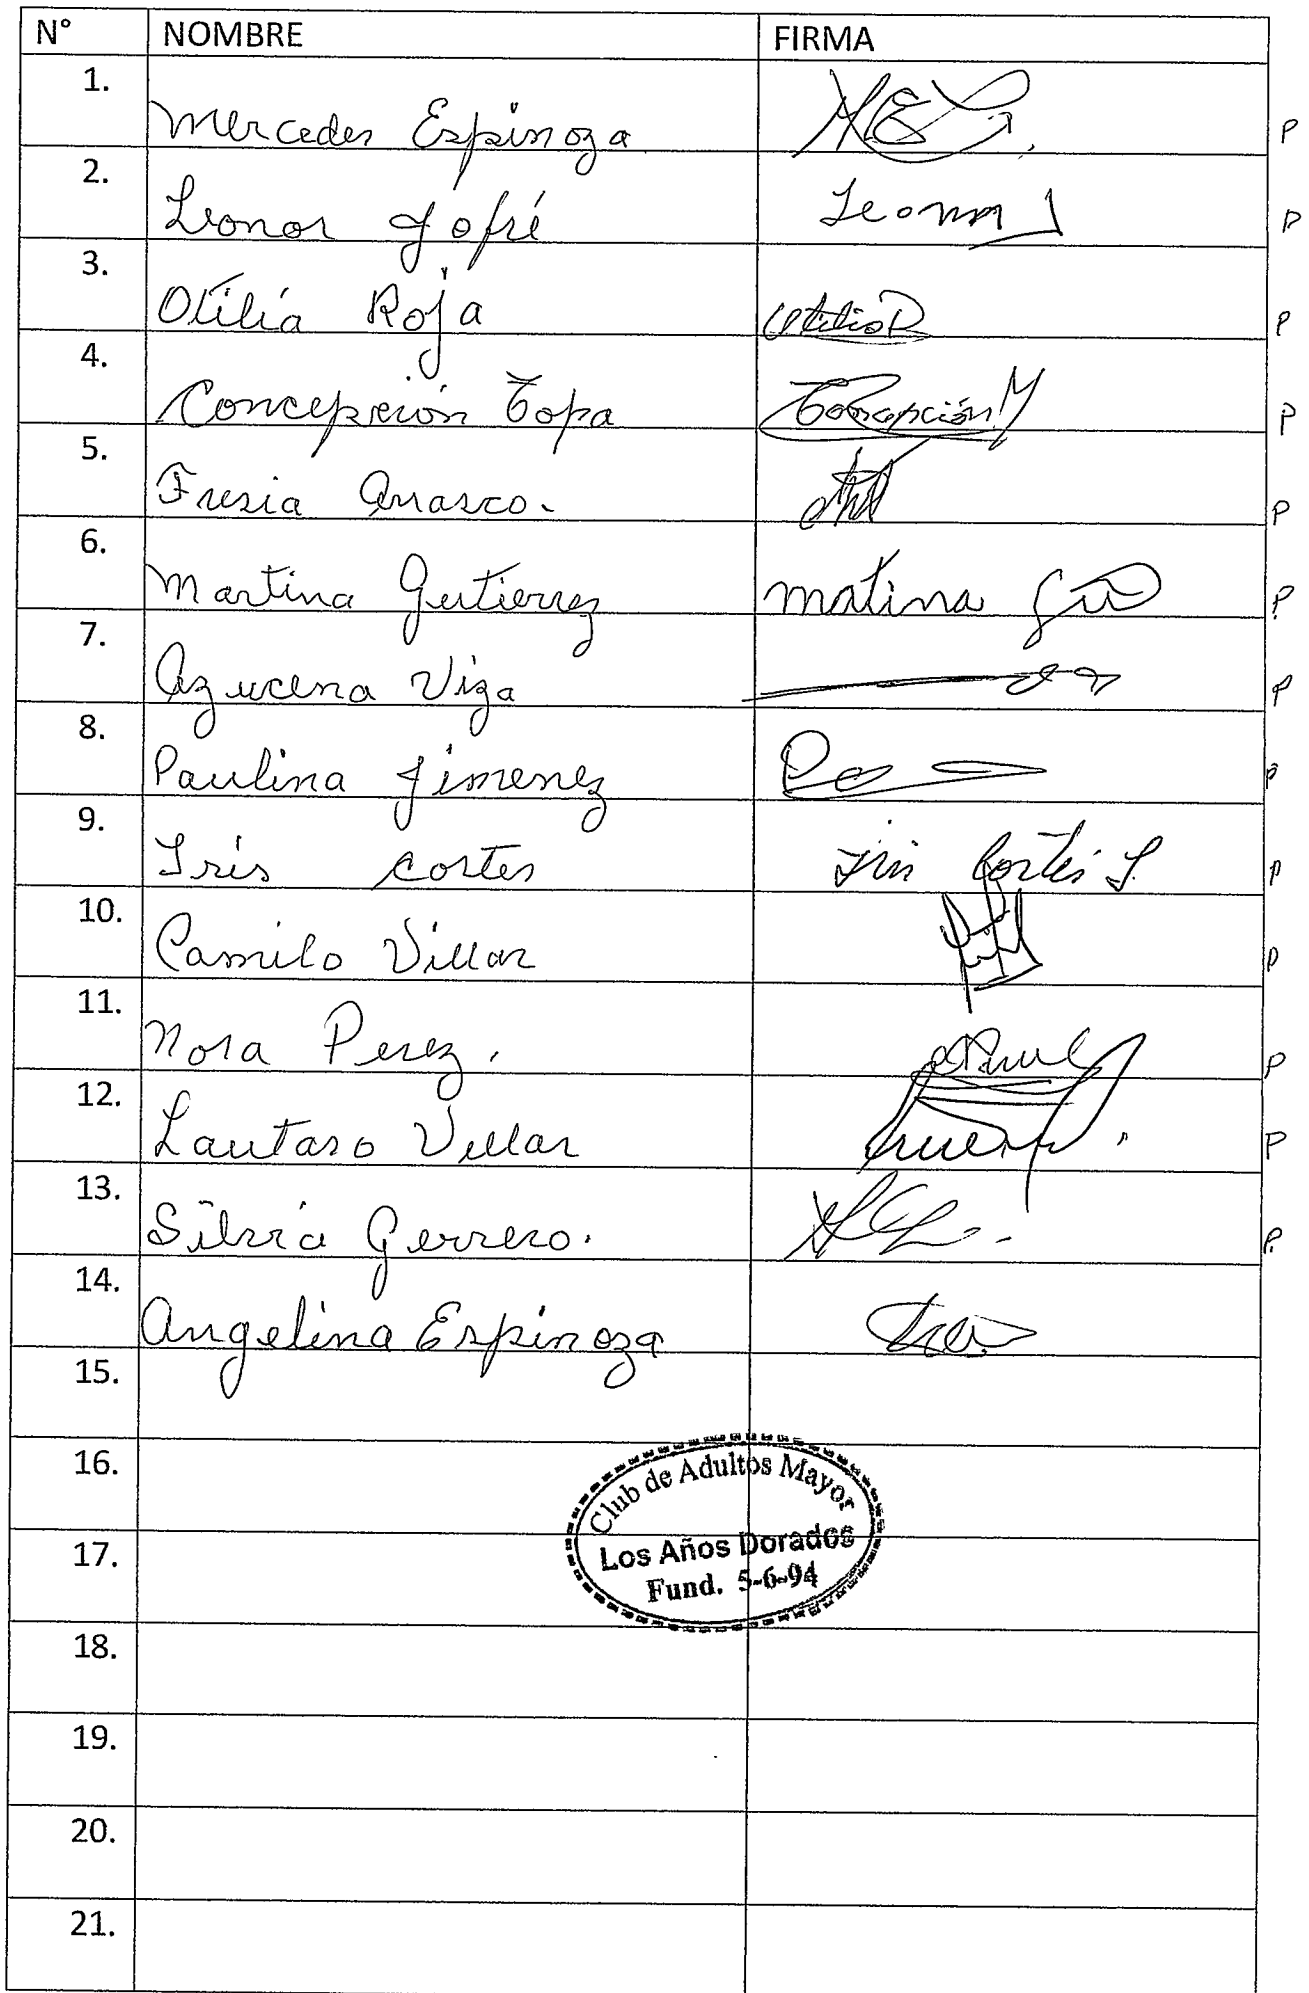 N° NOMBRE FIRMA
1. Mercedes Espinoza P
2. Leonor Jofré Leonor J P
3. Otilia Roja Otilia R P
4. Concepción Topa Concepción P
5. Fresia Arrasco. P
6. Martina Gutierrez matina P
7. Azucena Viza P
8. Paulina Jimenez P
9. Iris cortes Iris Cortés P
10. Camilo Villar P
11. Nora Perez. P
12. Lautaro Villar P
13. Silvia Gerrero. P.
14. Angelina Espinoza
15.
16.
Club de Adultos Mayor
17.
Los Años Dorados
Fund. 5-6-94
18.
19.
20.
21.